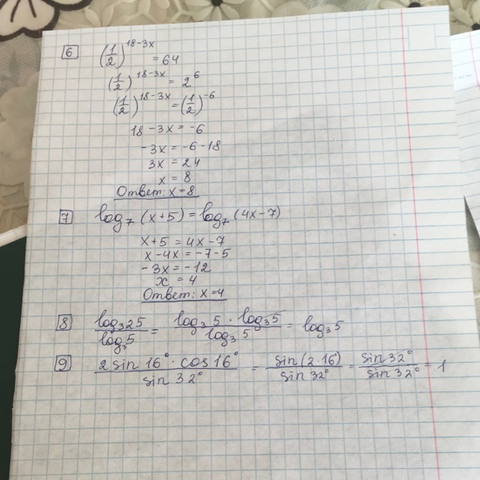 6 (1/2)^(18-3x) = 64
(1/2)^(18-3x) = 2^6
(1/2)^(18-3x) = (1/2)^(-6)
18-3x = -6
-3x = -6-18
3x = 24
x = 8
Ответ: x=8
7 log₇(x+5) = log₇(4x-7)
x+5 = 4x-7
x-4x = -7-5
-3x = -12
x = 4
Ответ: x=4
8 log₃25/log₃5 = log₃5 · log₃5/log₃5 = log₃5
9 2sin16°·cos16°/sin32° = sin(2·16)/sin32° = sin32°/sin32° = 1